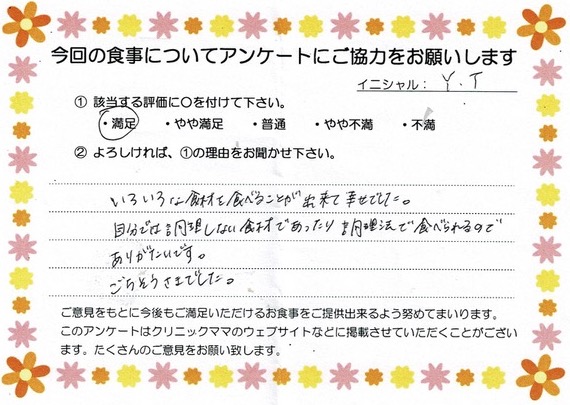 今回の食事についてアンケートにご協力をお願いします
イニシャル: Y.T
① 該当する評価に○を付けて下さい。
・満足 ・やや満足 ・普通 ・やや不満 ・不満
② よろしければ、①の理由をお聞かせ下さい。
いろいろな食材を食べることが出来て幸せでした。
自分では調理しない食材であったり調理法で食べられるので
ありがたいです。
ごちそうさまでした。
ご意見をもとに今後もご満足いただけるお食事をご提供出来るよう努めてまいります。
このアンケートはクリニックママのウェブサイトなどに掲載させていただくことがござい
ます。たくさんのご意見をお願い致します。